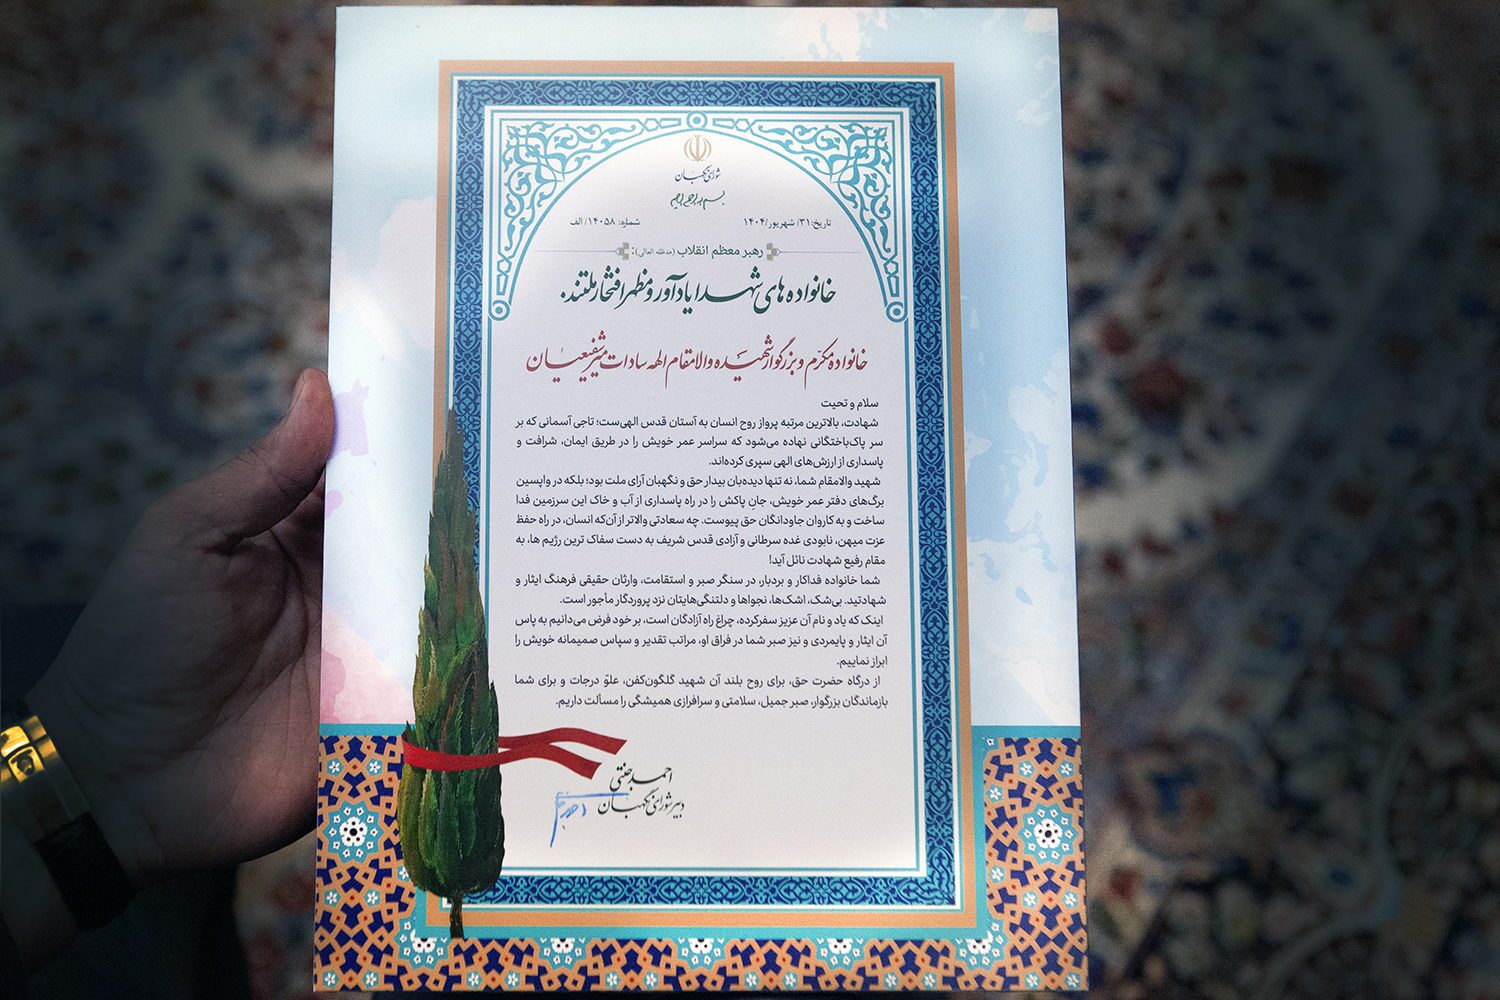 شورای نگهبان
بسم الله الرحمن الرحیم
تاریخ: ۳۱/ شهریور/۱۴۰۴
شماره: ۱۴۰۵۸/ الف
رهبر معظم انقلاب (مدظله العالی):
خانواده های شهدا یادآور و مظهر افتخار ملتند.
خانواده مکرّم و بزرگوار شهیده والامقام الهه سادات میرشفیعیان
سلام و تحیت
شهادت، بالاترین مرتبه پرواز روح انسان به آستان قدس الهی‌ست؛ تاجی آسمانی که بر
سر پاک‌باختگانی نهاده می‌شود که سراسر عمر خویش را در طریق ایمان، شرافت و
پاسداری از ارزش‌های الهی سپری کرده‌اند.
شهید والامقام شما، نه تنها دیده‌بان بیدار حق و نگهبان آرای ملت بود؛ بلکه در واپسین
برگ‌های دفتر عمر خویش، جانِ پاکش را در راه پاسداری از آب و خاک این سرزمین فدا
ساخت و به کاروان جاودانگان حق پیوست. چه سعادتی والاتر از آن‌که انسان، در راه حفظ
عزت میهن، نابودی غده سرطانی و آزادی قدس شریف به دست سفاک ترین رژیم ها، به
مقام رفیع شهادت نائل آید!
شما خانواده فداکار و بردبار، در سنگر صبر و استقامت، وارثان حقیقی فرهنگ ایثار و
شهادتید. بی‌شک، اشک‌ها، نجواها و دلتنگی‌هایتان نزد پروردگار مأجور است.
اینک که یاد و نام آن عزیز سفرکرده، چراغ راه آزادگان است، بر خود فرض می‌دانیم به پاس
آن ایثار و پایمردی و نیز صبر شما در فراق او، مراتب تقدیر و سپاس صمیمانه خویش را
ابراز نماییم.
از درگاه حضرت حق، برای روح بلند آن شهید گلگون‌کفن، علوّ درجات و برای شما
بازماندگان بزرگوار، صبر جمیل، سلامتی و سرافرازی همیشگی را مسألت داریم.
احمد جنتی
دبیر شورای نگهبان